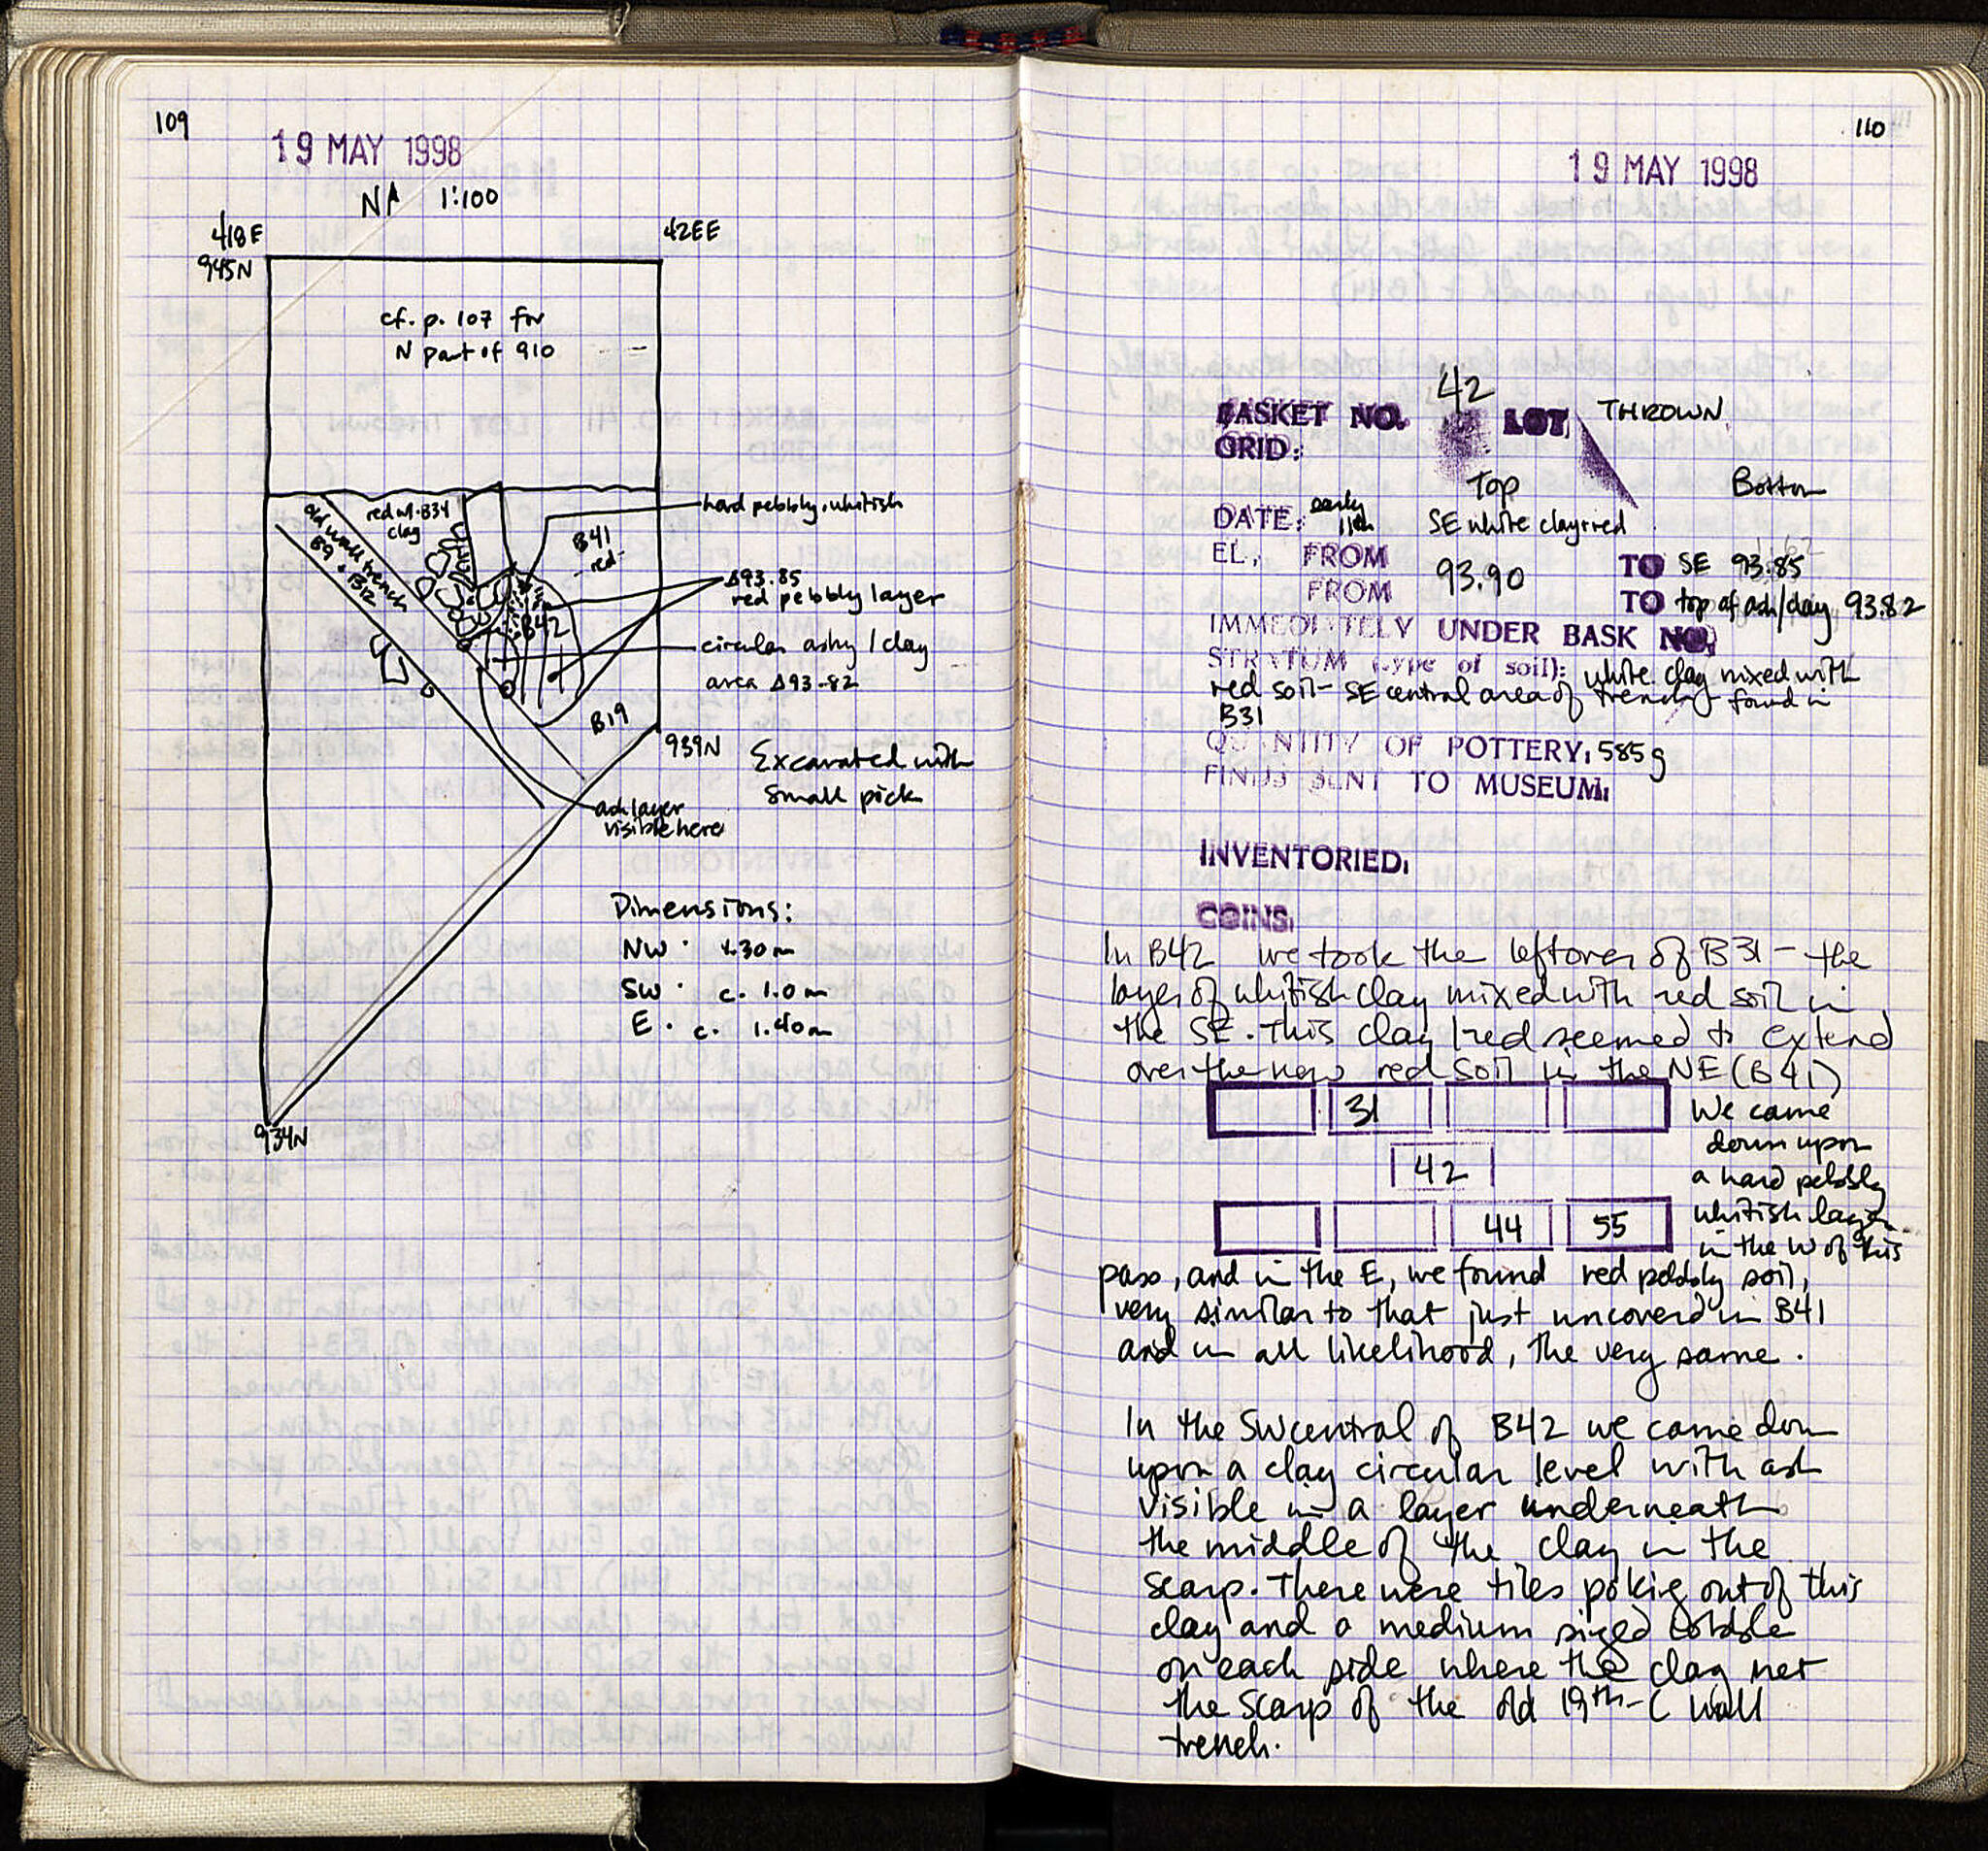 109
19 MAY 1998
N 1:100
418E
42EE
945N
cf. p. 107 for
N part of 910
old wall trench
B9 + B12
red w. B34
clay
B41
red
hard pebbly whitish
Δ93.85
red pebbly layer
B42
circular ashy / clay
area Δ93.82
B19
939N
Excavated with
small pick
ash layer
visible here
Dimensions:
NW · 1.30m
SW · c. 1.0m
E · c. 1.40m
934N
110
19 MAY 1998
42
BASKET NO. LOT THROWN
GRID:
Top Bottom
DATE: early 11th SE white clay red
EL. FROM 93.90 TO SE 93.85
FROM TO top of ash/clay 93.82
IMMEDIATELY UNDER BASK NO.
STRATUM (type of soil): white clay mixed with
red soil - SE central area of trench found in
B31
QUANTITY OF POTTERY: 585g
FINDS SENT TO MUSEUM:
INVENTORIED:
COINS:
In B42 we took the leftover of B31 - the
layer of whitish clay mixed with red soil in
the SE. This clay/red seemed to extend
over the new red soil in the NE (B41)
31
42
44 55
We came
down upon
a hard pebbly
whitish layer
in the W of this
pass, and in the E, we found red pebbly soil,
very similar to that just uncoverd in B41
and in all likelihood, the very same.
In the SW central of B42 we came down
upon a clay circular level with ash
visible in a layer underneath
the middle of the clay in the
scarp. There were tiles poking out of this
clay and a medium sized cobble
on each side where the clay met
the scarp of the old 19th-C wall
trench.